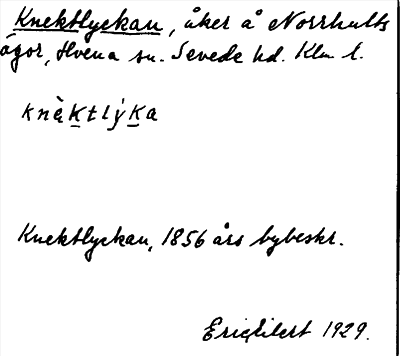 Knektlyckan, åker å Norrhults
ägor, Hvena sn. Sevede hd. Klm l.
knä̀ktlýka
Knektlyckan, 1856 års bybeskr.
Eric Eilert 1929.